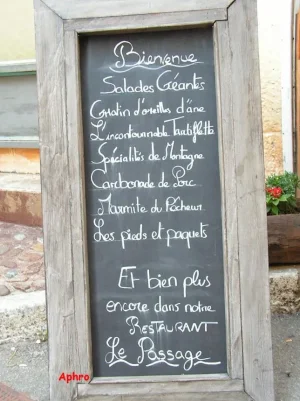 Bienvenue
Salades Géantes
Gratin d'oreilles d'âne
L'incontournable Tartiflette
Spécialités de Montagne
Carbonade de Porc
Marmite du Pêcheur
Les pieds et paquets
Et bien plus
encore dans notre
RESTAURANT
Le Passage
Aphro